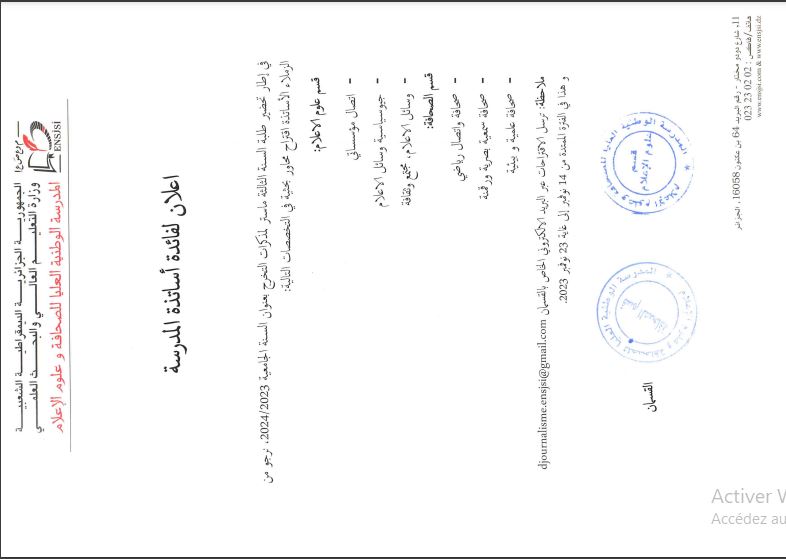 الجمهورية الجزائرية الديمقراطية الشعبية
وزارة التعليم العالي والبحث العلمي
المدرسة الوطنية العليا للصحافة و علوم الإعلام
ENSJSI
اعلان لفائدة أساتذة المدرسة
في إطار تحضير طلبة السنة الثالثة ماستر لمذكرات التخرج بعنوان السنة الجامعية 2024/2023، نرجو من
الزملاء الأساتذة اقتراح محاور بحثية في التخصصات التالية:
قسم علوم الاعلام:
- اتصال مؤسساتي
- جيوسياسية وسائل الاعلام
- وسائل الاعلام، مجتمع وثقافة
قسم الصحافة:
- صحافة واتصال رياضي
- صحافة سمعية بصرية ورقمنة
- صحافة علمية و بيئية
ملاحظة: ترسل الاقتراحات عبر البريد الالكتروني الخاص بالقسمان djournalisme.ensjsi@gmail.com
و هذا في الفترة الممتدة من 14 نوفمبر إلى غاية 23 نوفمبر 2023.
القسمان
المدرسة الوطنية العليا للصحافة و علوم الإعلام
قسم
علوم الإعلام
المدرسة الوطنية العليا للصحافة و علوم الإعلام
قسم الصحافة
11، شارع دودو مختار - رقم البريد 64 بن عكنون 16058، الجزائر
هاتف/فاكس : 02 02 23 023
www.ensjsi.com & www.ensjsi.dz
Activer W
Accédez au